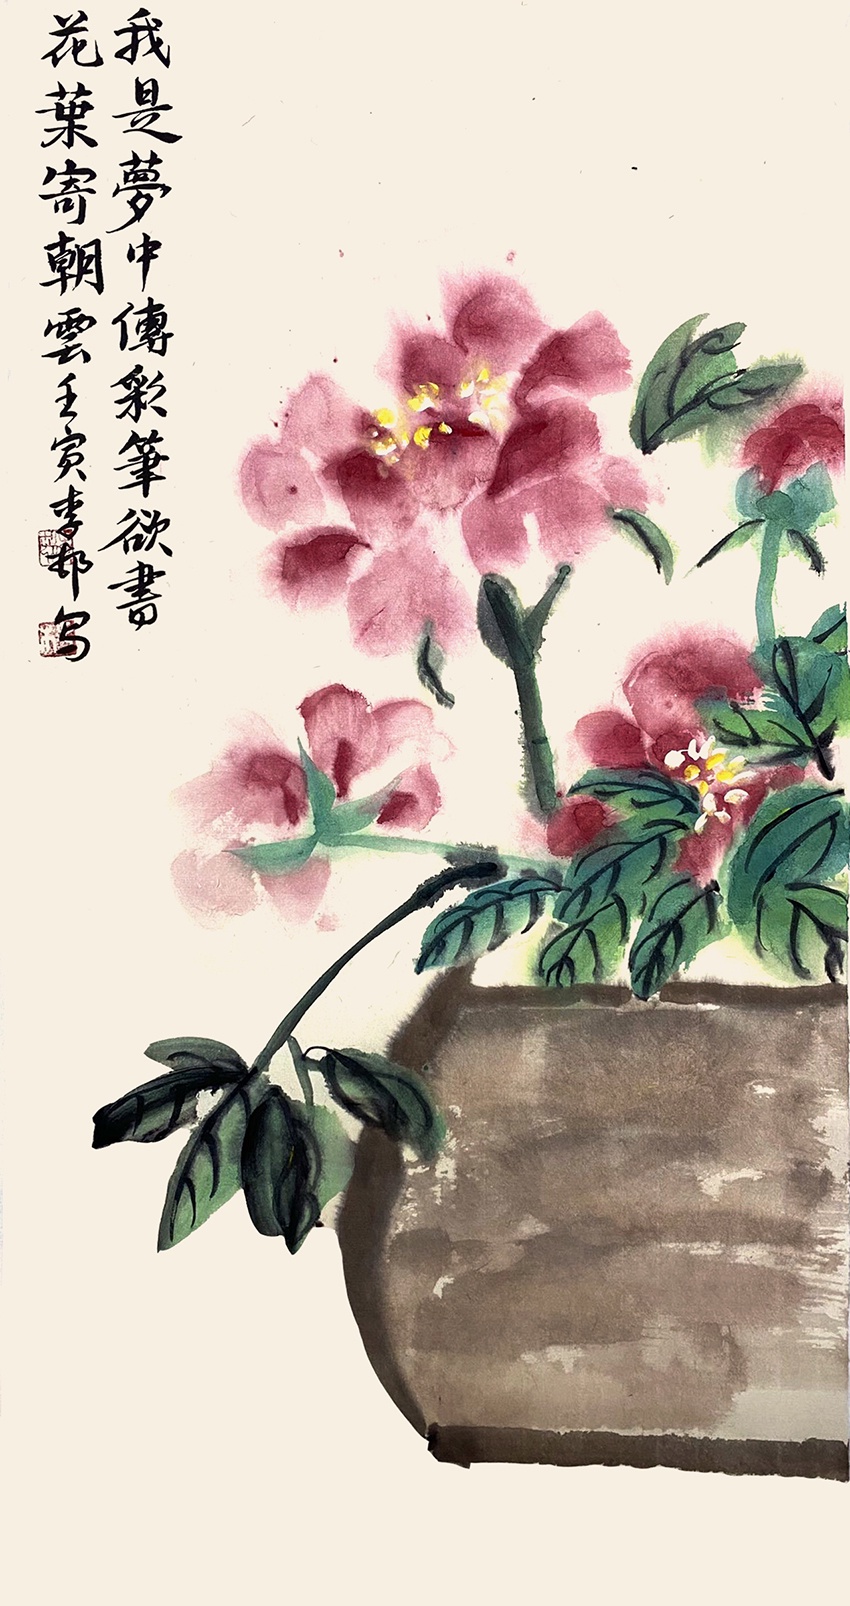 我是夢中傳彩筆欲書
花葉寄朝雲壬寅李邨写